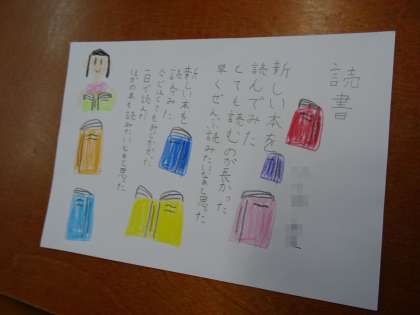 読書
新しい本を
読んでみた
とても読むのが長かった
早くぜんぶ読みたいなぁと思った
新しい本を
読んでみた
一日で読んだ
ほかの本も読みたいなぁと思った